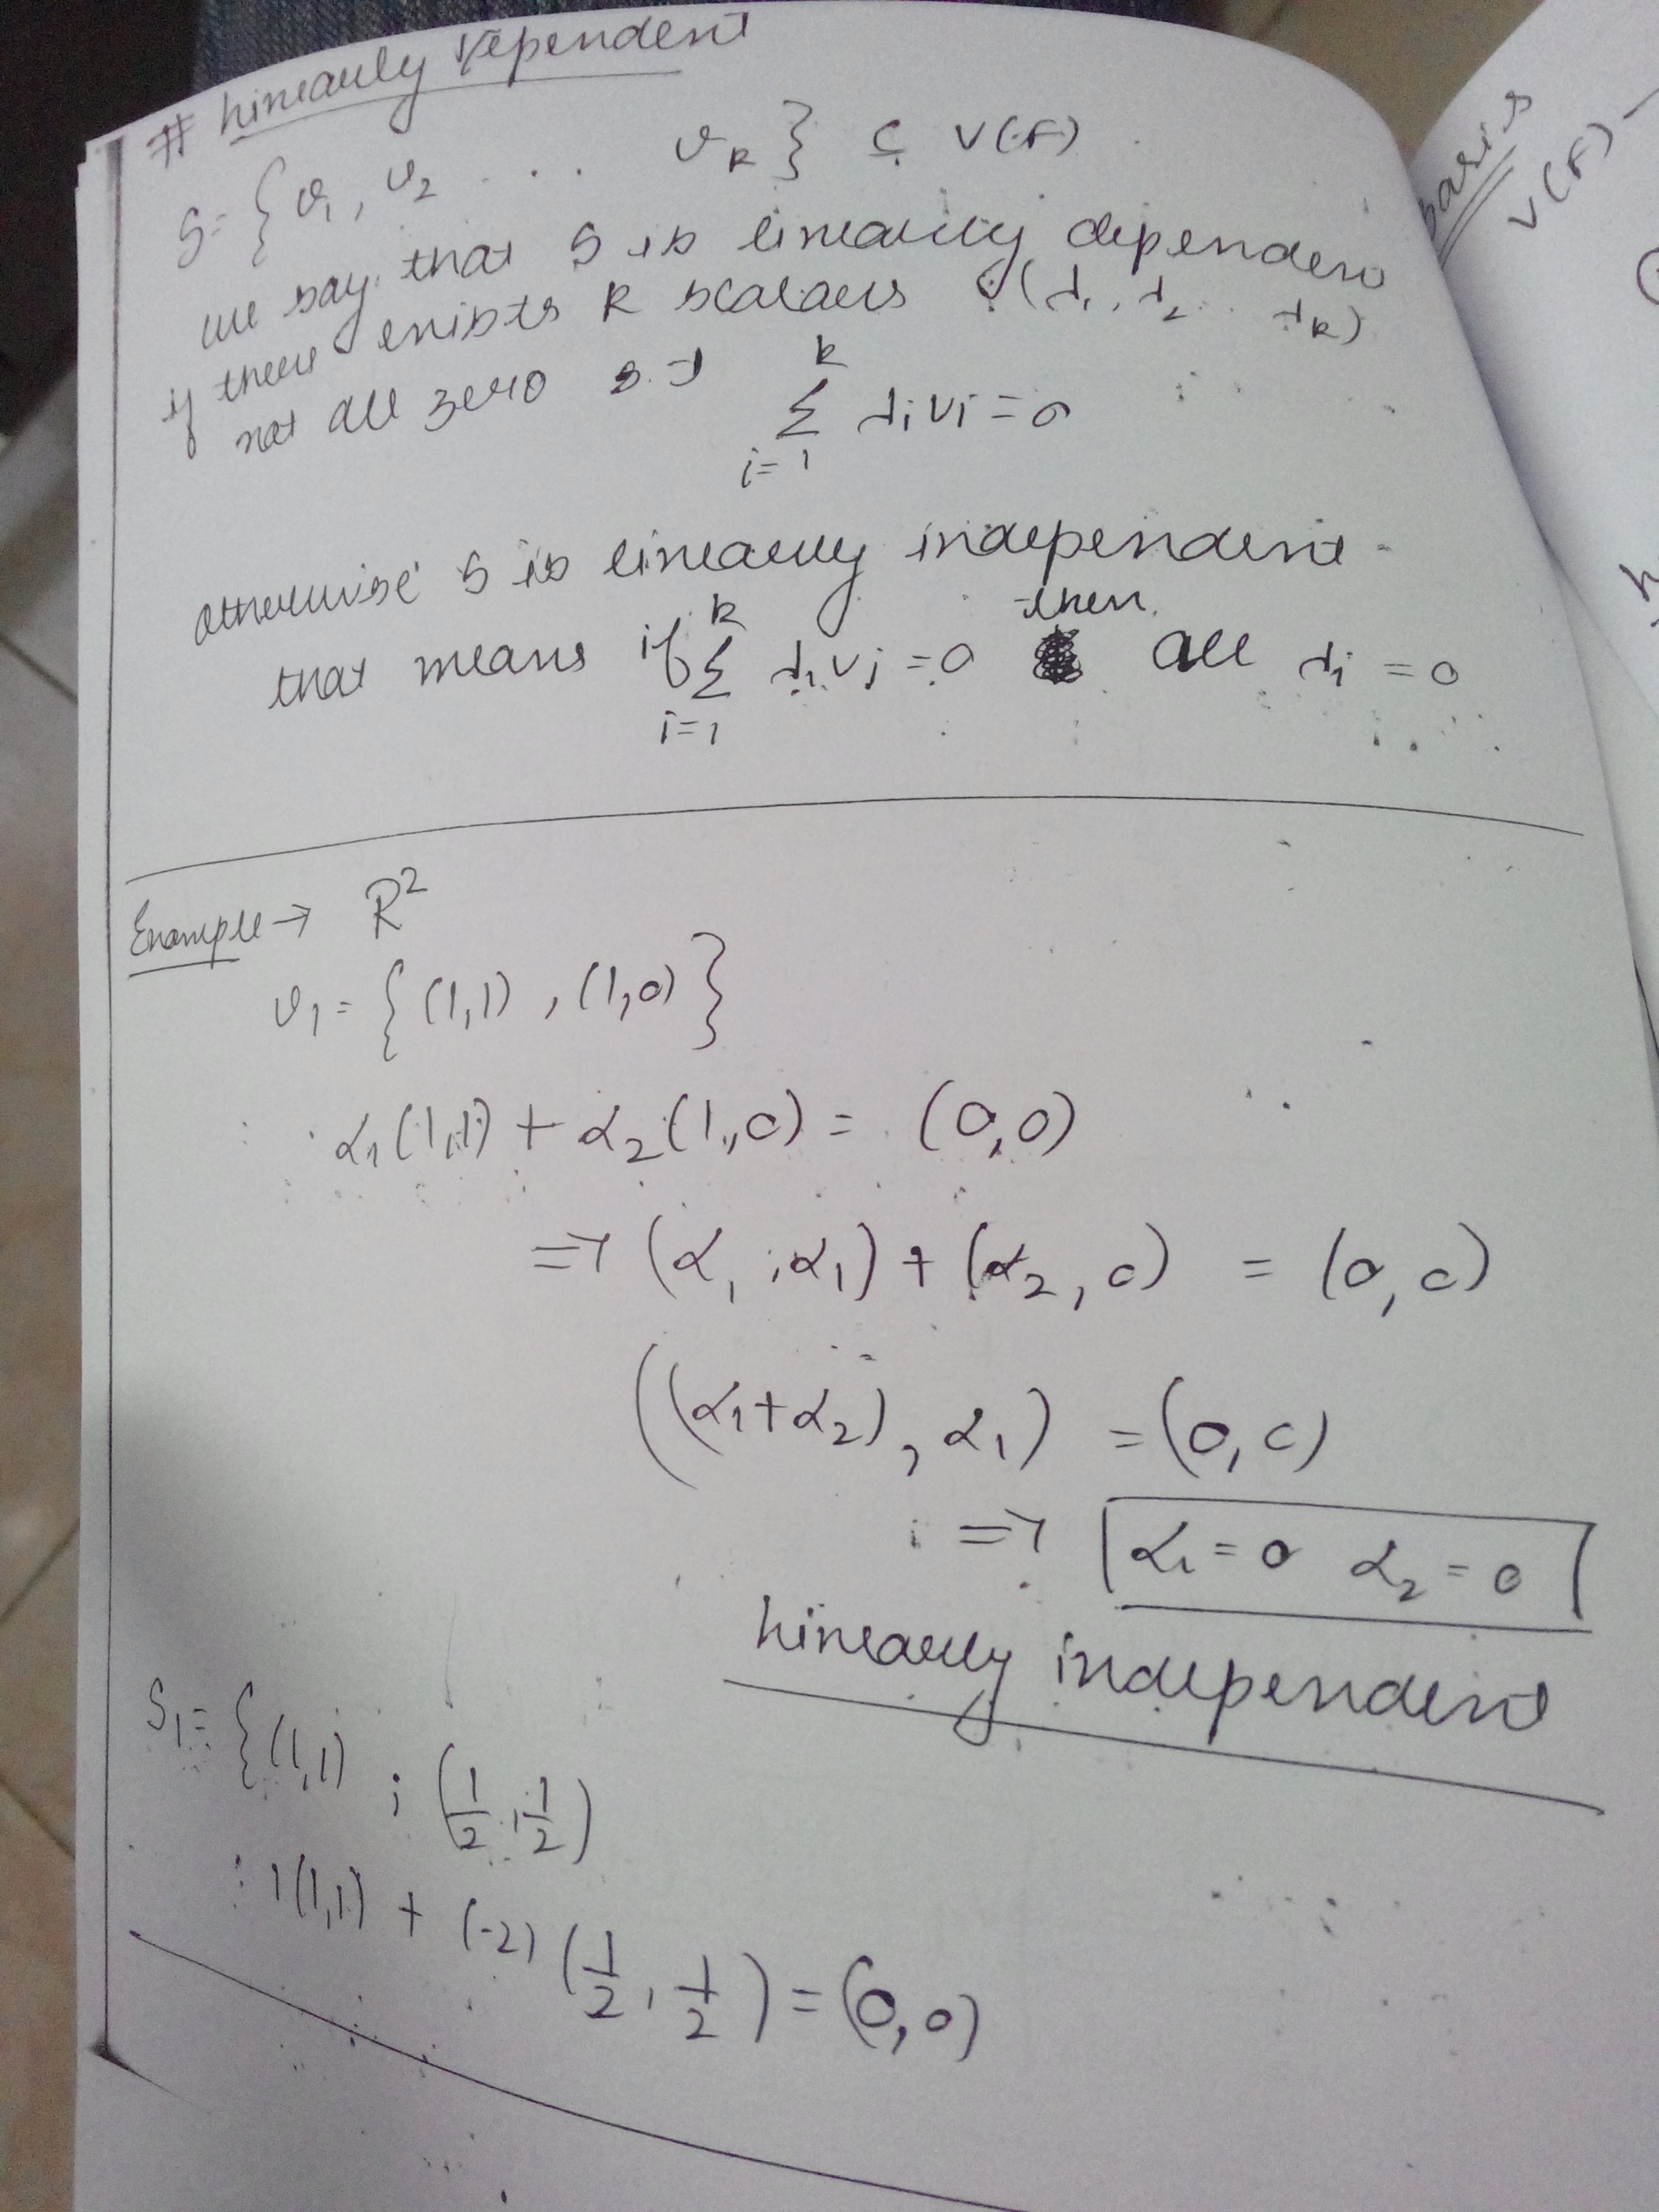 # Linearly Dependent
S = { v₁, v₂ . . . v_k } ⊆ V(F)
we say that S is linearly dependent
if there exists k scalars (λ₁, λ₂ .. λ_k)
not all zero s.t ∑_{i=1}^{k} λᵢvᵢ = 0
otherwise S is linearly independent
that means if ∑_{i=1}^{k} λᵢvᵢ = 0 then all λᵢ = 0
Example → R²
v₁ = { (1,1) , (1,0) }
α₁(1,1) + α₂(1,0) = (0,0)
⇒ (α₁, α₁) + (α₂, 0) = (0, 0)
((α₁+α₂), α₁) = (0, 0)
⇒ α₁ = 0 α₂ = 0
Linearly independent
S₁ = { (1,1) ; (1/2, 1/2)
1(1,1) + (-2) (1/2, 1/2) = (0,0)
basis
V(F) –